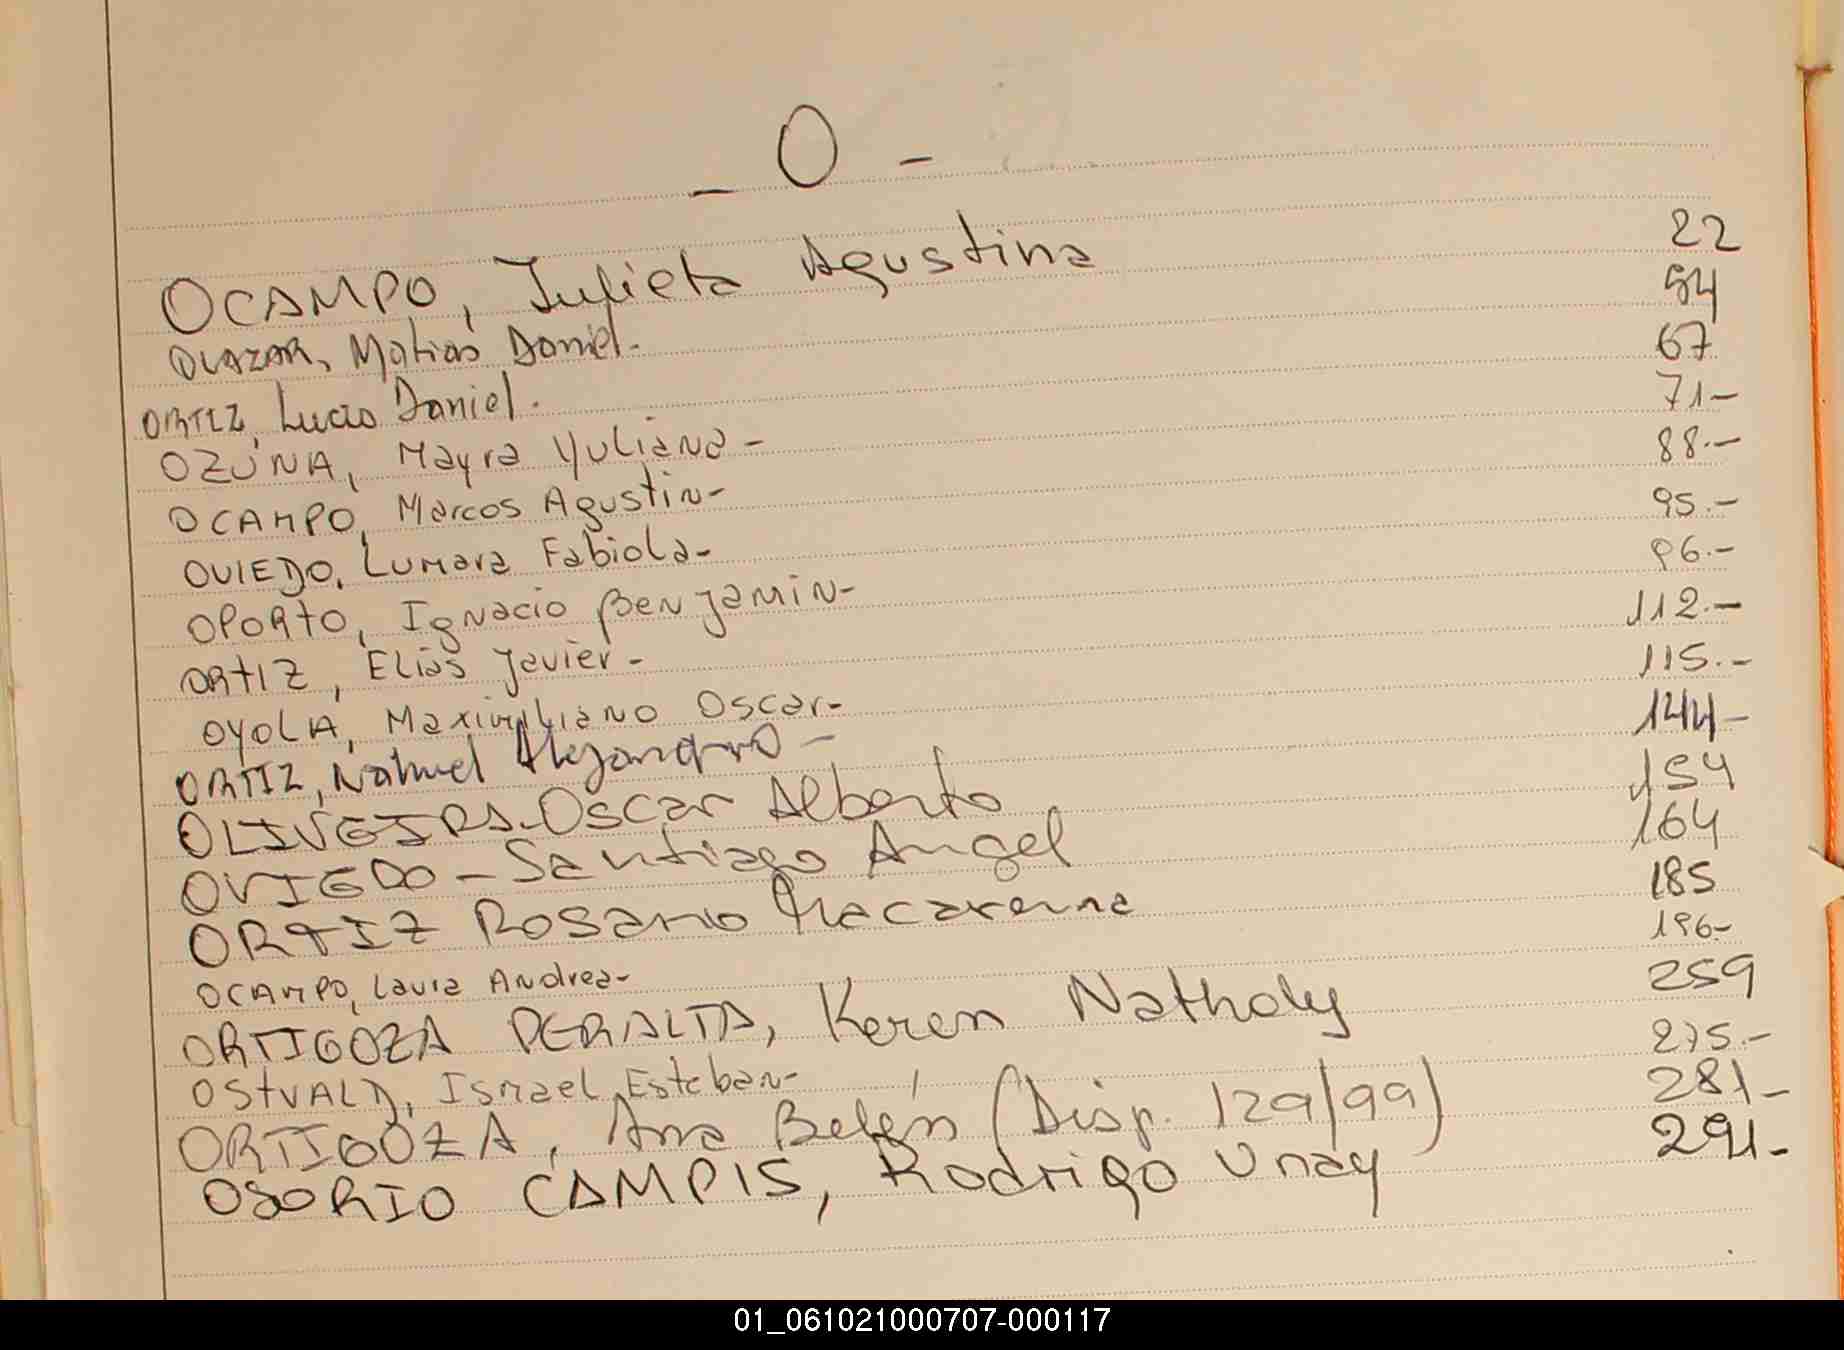 - O -
OCAMPO, Julieta Agustina 22
OLAZAR, Matias Daniel.- 54
ORTIZ, Lucas Daniel. 67
OZUNA, Mayra Yuliana - 71-
OCAMPO, Marcos Agustin- 88.-
OVIEDO, Lumara Fabiola- 95.-
OPORTO, Ignacio Benjamin- 96.-
ORTIZ, Elias Javier- 112.-
OYOLA, Maximiliano Oscar- 115.-
ORTIZ, Nahuel Alejandro - 144-
OLIVEIRA-Oscar Alberto 154
OVIEDO - Santiago Angel 164
ORTIZ Rosario Macarena 185
OCAMPO, Laura Andrea- 196-
ORTIGOZA PERALTA, Keren Nathaly 259
OSTVALD, Ismael Esteban- 275.-
ORTIGOZA, Ana Belén (Disp. 129/99) 281-
OSORIO CAMPIS, Rodrigo Unay 291-
01_061021000707-000117